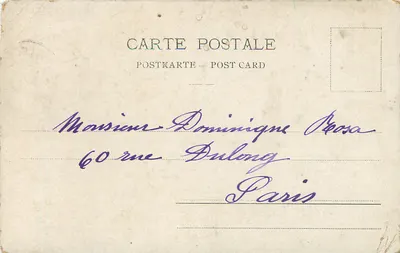 CARTE POSTALE
POSTKARTE – POST CARD
Monsieur Dominique Rosa
60 rue Dulong
Paris